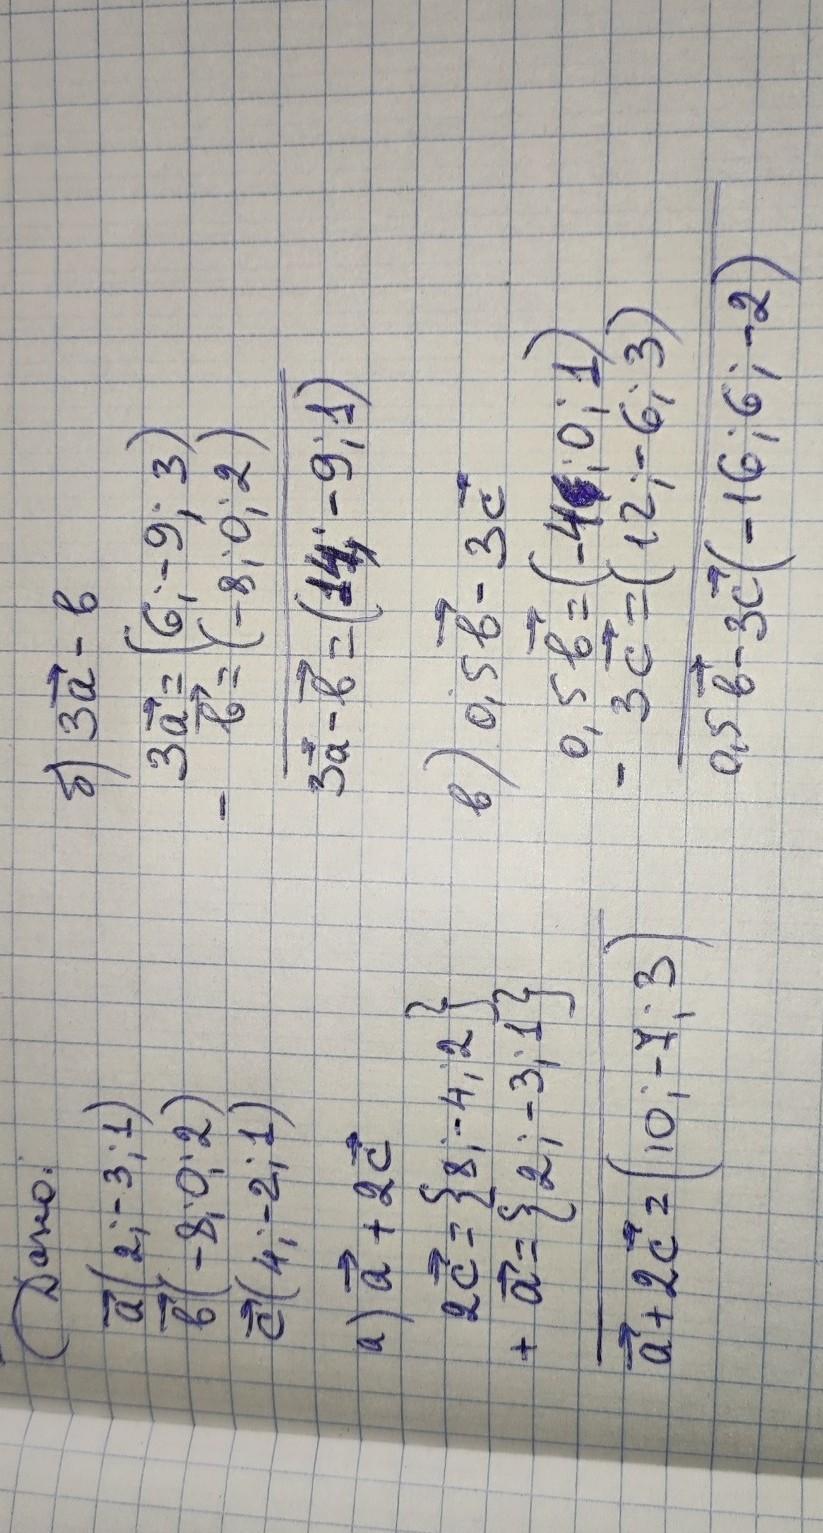 Дано:
a⃗(2;-3;1)
b⃗(-8;0;2)
c⃗(4;-2;1)
а) a⃗ + 2c⃗
2c⃗ = {8;-4;2}
+ a⃗ = {2;-3;1}
a⃗+2c⃗ = (10;-7;3)
б) 3a⃗ - в
3a⃗ = (6;-9;3)
- в⃗ = (-8;0;2)
3a⃗ - в⃗ = (14;-9;1)
в) 0,5в⃗ - 3c⃗
0,5в⃗ = (-4;0;1)
- 3c⃗ = (12;-6;3)
0,5в⃗ - 3c⃗(-16;6;-2)